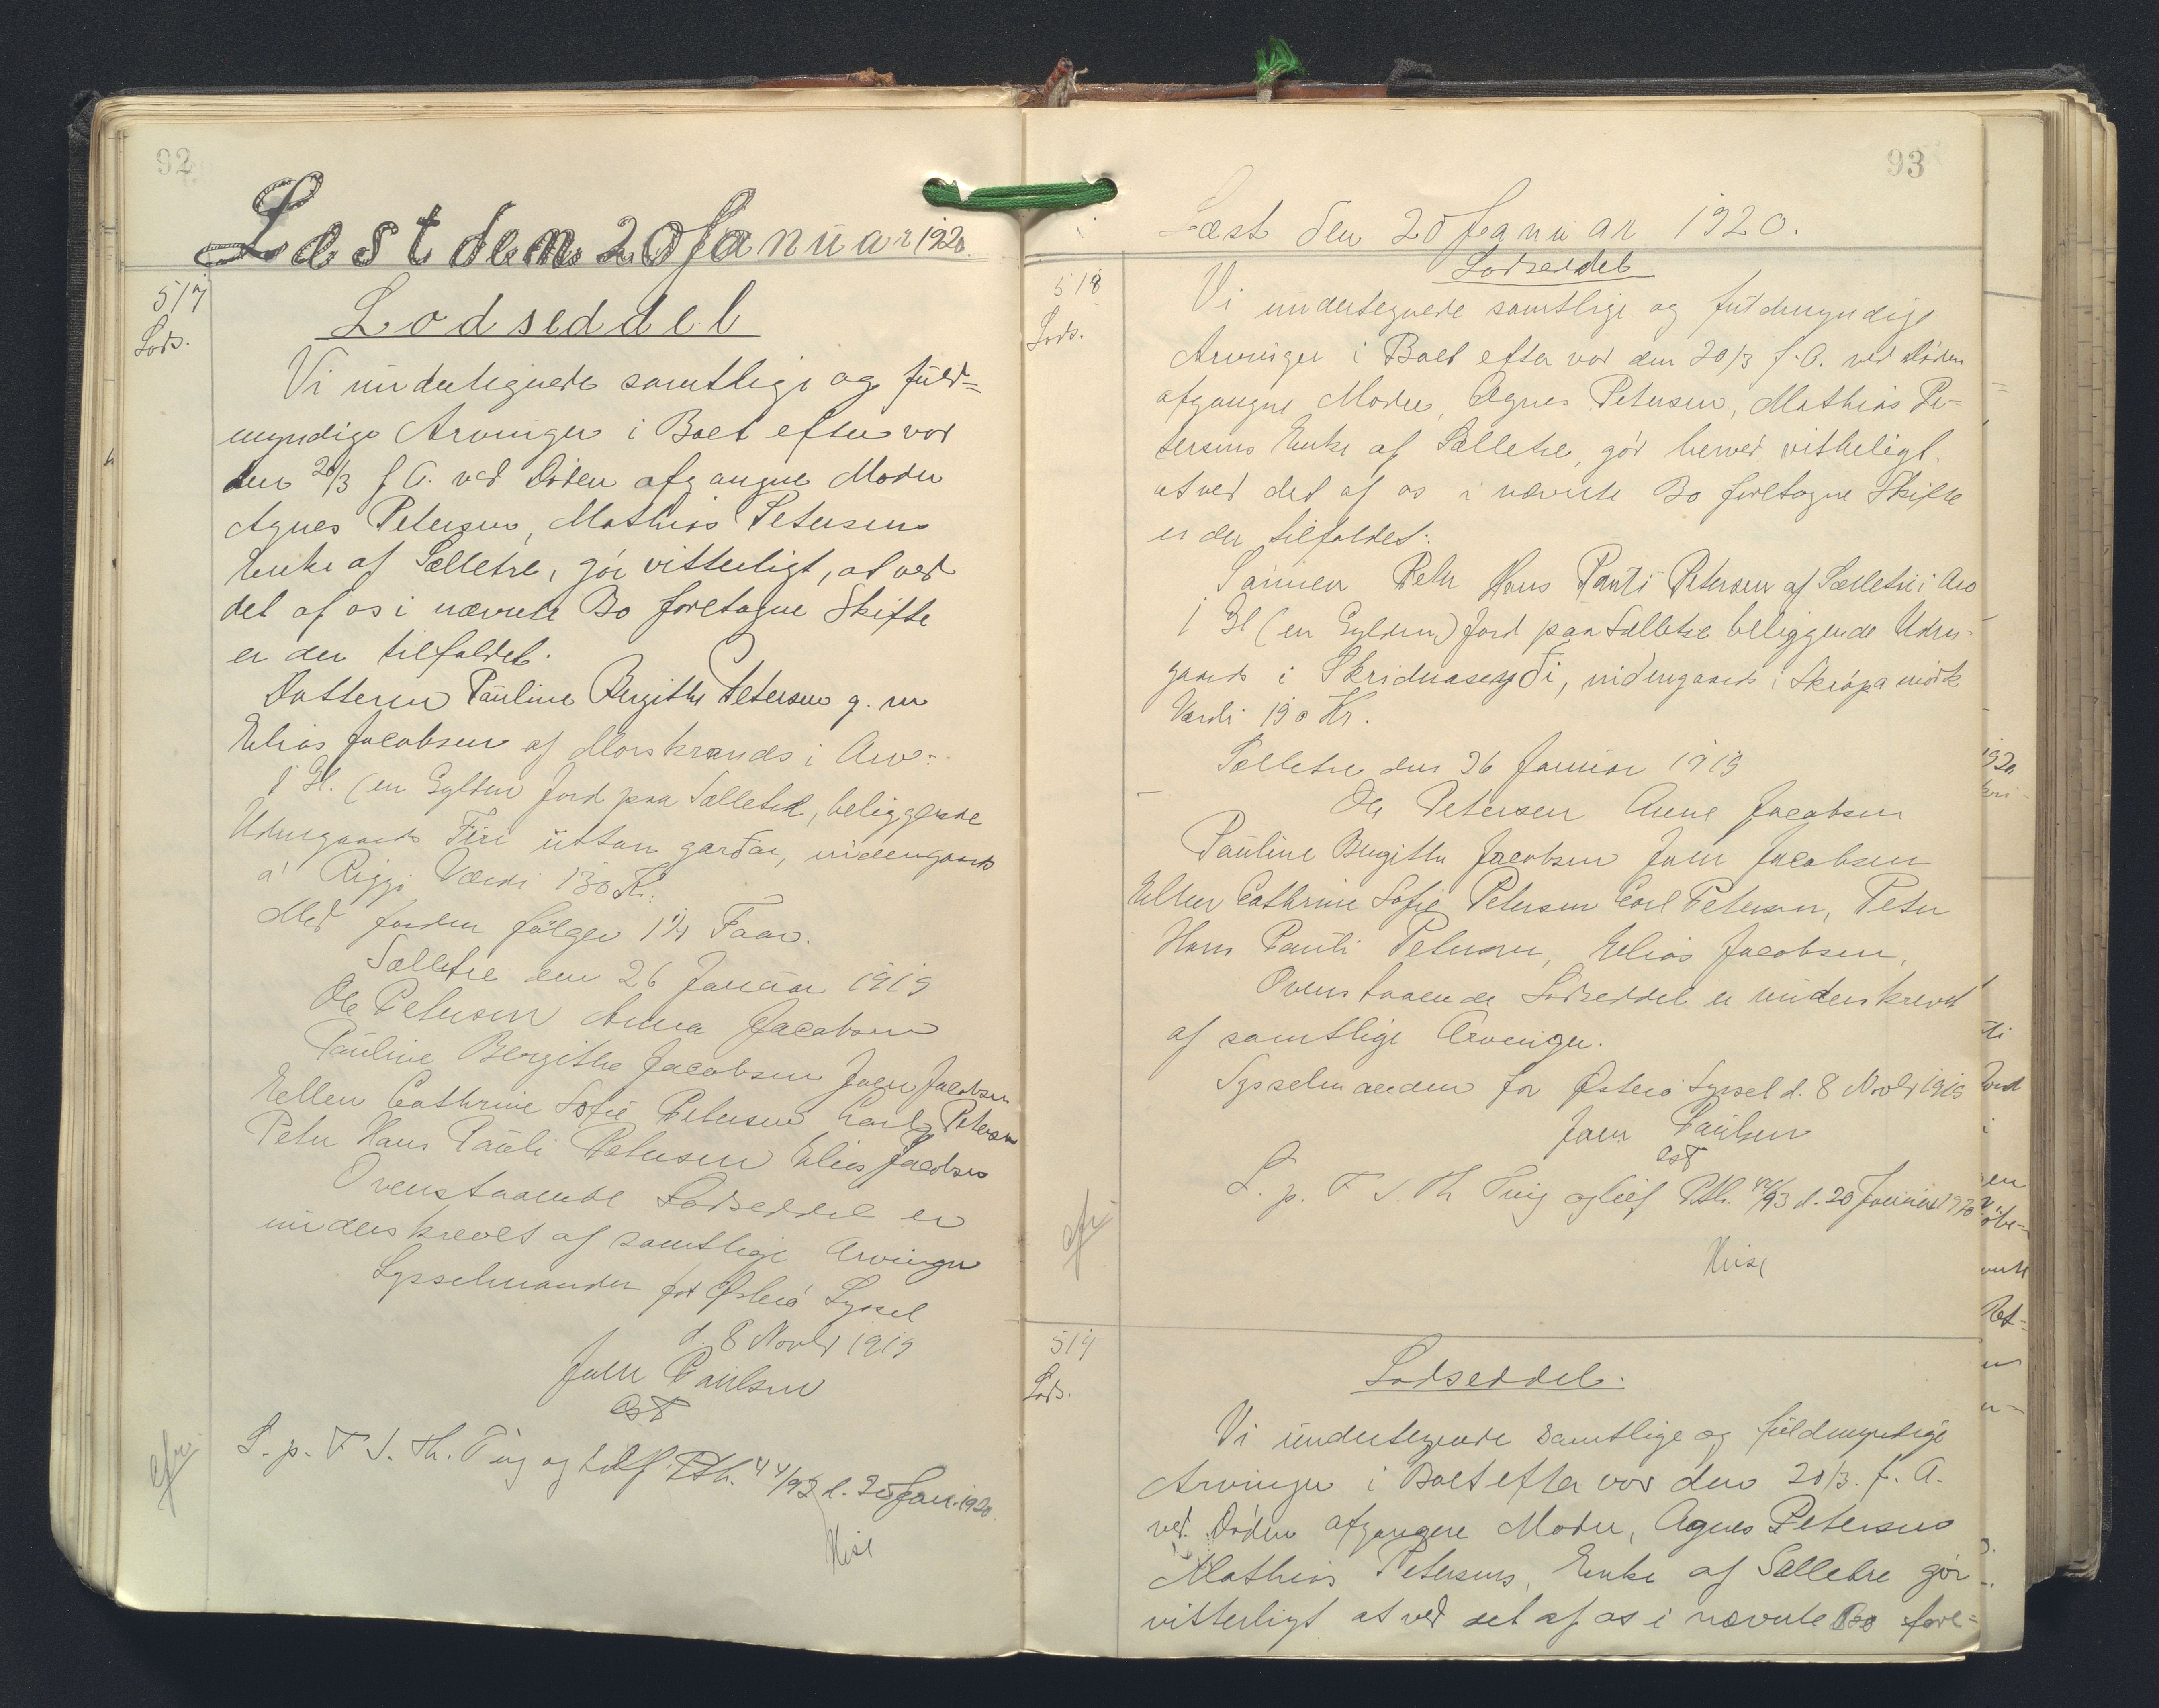 92
Læst den 20 Januar 1920.
517
Lods.
Lodseddel
Vi undertegnede samtlige og fuld=
myndige Arvinger i Boet efter vor
den 20/3 f A. ved Döden afgangne Moder
Agnes Petersen, Mathias Petersens
Enke af Selletre, gör vitterligt, at ved
det af os i nævnte Bo foretagne Skifte
er der tilfaldet.
Datteren Pauline Bergithe Petersen g. m
Elias Jacobsen af Morskranes i Arv:
1 Gl. (en Gylden Jord paa Selletre, beliggende
Udengaards Firi uttan garðar, indengaards
á Riggi Værdi 130 Kr.
Med Jorden fölger 1 1/4 Faar.
Selletre den 26 Januar 1919
Ole Petersen Anna Jacobsen
Pauline Bergithe Jacobsen Joen Jacobsen
Ellen Cathrine Sofie Petersen Carl Petersen
Peter Hans Pauli Petersen Elias Jacobsen
Ovenstaaende Lodseddel er
underskrevet af samtlige Arvinger
Sysselmanden for Österö Syssel
d. 8 Novbr 1919
Joen Poulsen
cst
L. p. F S. Th. Ting og
Ptb. 44/92 d. 20 Jan. 1920.
93
Læst den 20 Januar 1920.
518
Lods.
Lodseddel
Vi undertegnede samtlige og fuldmyndige
Arvinger i Boet efter vor den 20/3 f. A. ved Döden
afgangne Moder, Agnes Petersen, Mathias Pe-
tersens Enke af Selletre, gör herved vitterligt.
at ved det af os i nævnte Bo foretagne Skifte
er der tilfaldet:
Sönnen Peter Hans Pauli Petersen af Selletre i Arv
1 Gl (en Gylden) Jord paa Selletre beliggende Uden-
gaards i
indengaards i
Værdi 190 Kr.
Selletre den 26 Januar 1919
Ole Petersen Anne Jacobsen
Pauline Bergithe Jacobsen Joen Jacobsen
Ellen Cathrine Sofie Petersen Carl Petersen, Peter
Hans Pauli Petersen, Elias Jacobsen,
Ovenstaaende Lodseddel er underskrevet
af samtlige Arvinger.
Sysselmanden for Österö Syssel d. 8 Novbr 1919
Joen Poulsen
cst
L. p. F S. Th Ting og
Ptb. 44/93 d. 20 Januar 1920
519
Lods.
Lodseddel.
Vi undertegnede samtlige og fuldmyndige
Arvinger i Boet efter vor den 20/3. f. A.
ved Döden afgangne Moder, Agnes Petersen
Mathias Petersens, Enke af Selletre gör
vitterligt at ved det af os i nævnte Bo fore=